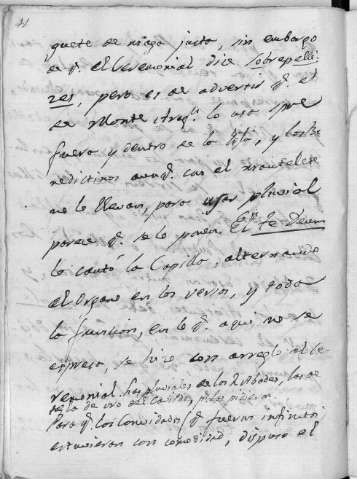 quete de            , sin embargo
de q.e el Ceremonial dice sobrepelli-
zes, pero es de advertir q.e el
de Monte            lo usa
fuera y dentro de la           , y los Be-
nedictinos aunq.e con el mantelete
no le llevan, para usar pluvial
parece q.e se lo ponen. El Te Deum
lo cantó la Capilla, alternando
el Organo en los versos, y toda
la funcion, en lo q.e aqui no se
expresa, se hizo con arreglo al Ce-
remonial. Las pluviales de los Abades, las de
tela de oro del
Para q.e los Comvidados (q.e fueron infinitos)
estuviesen con comodidad, dispuso el